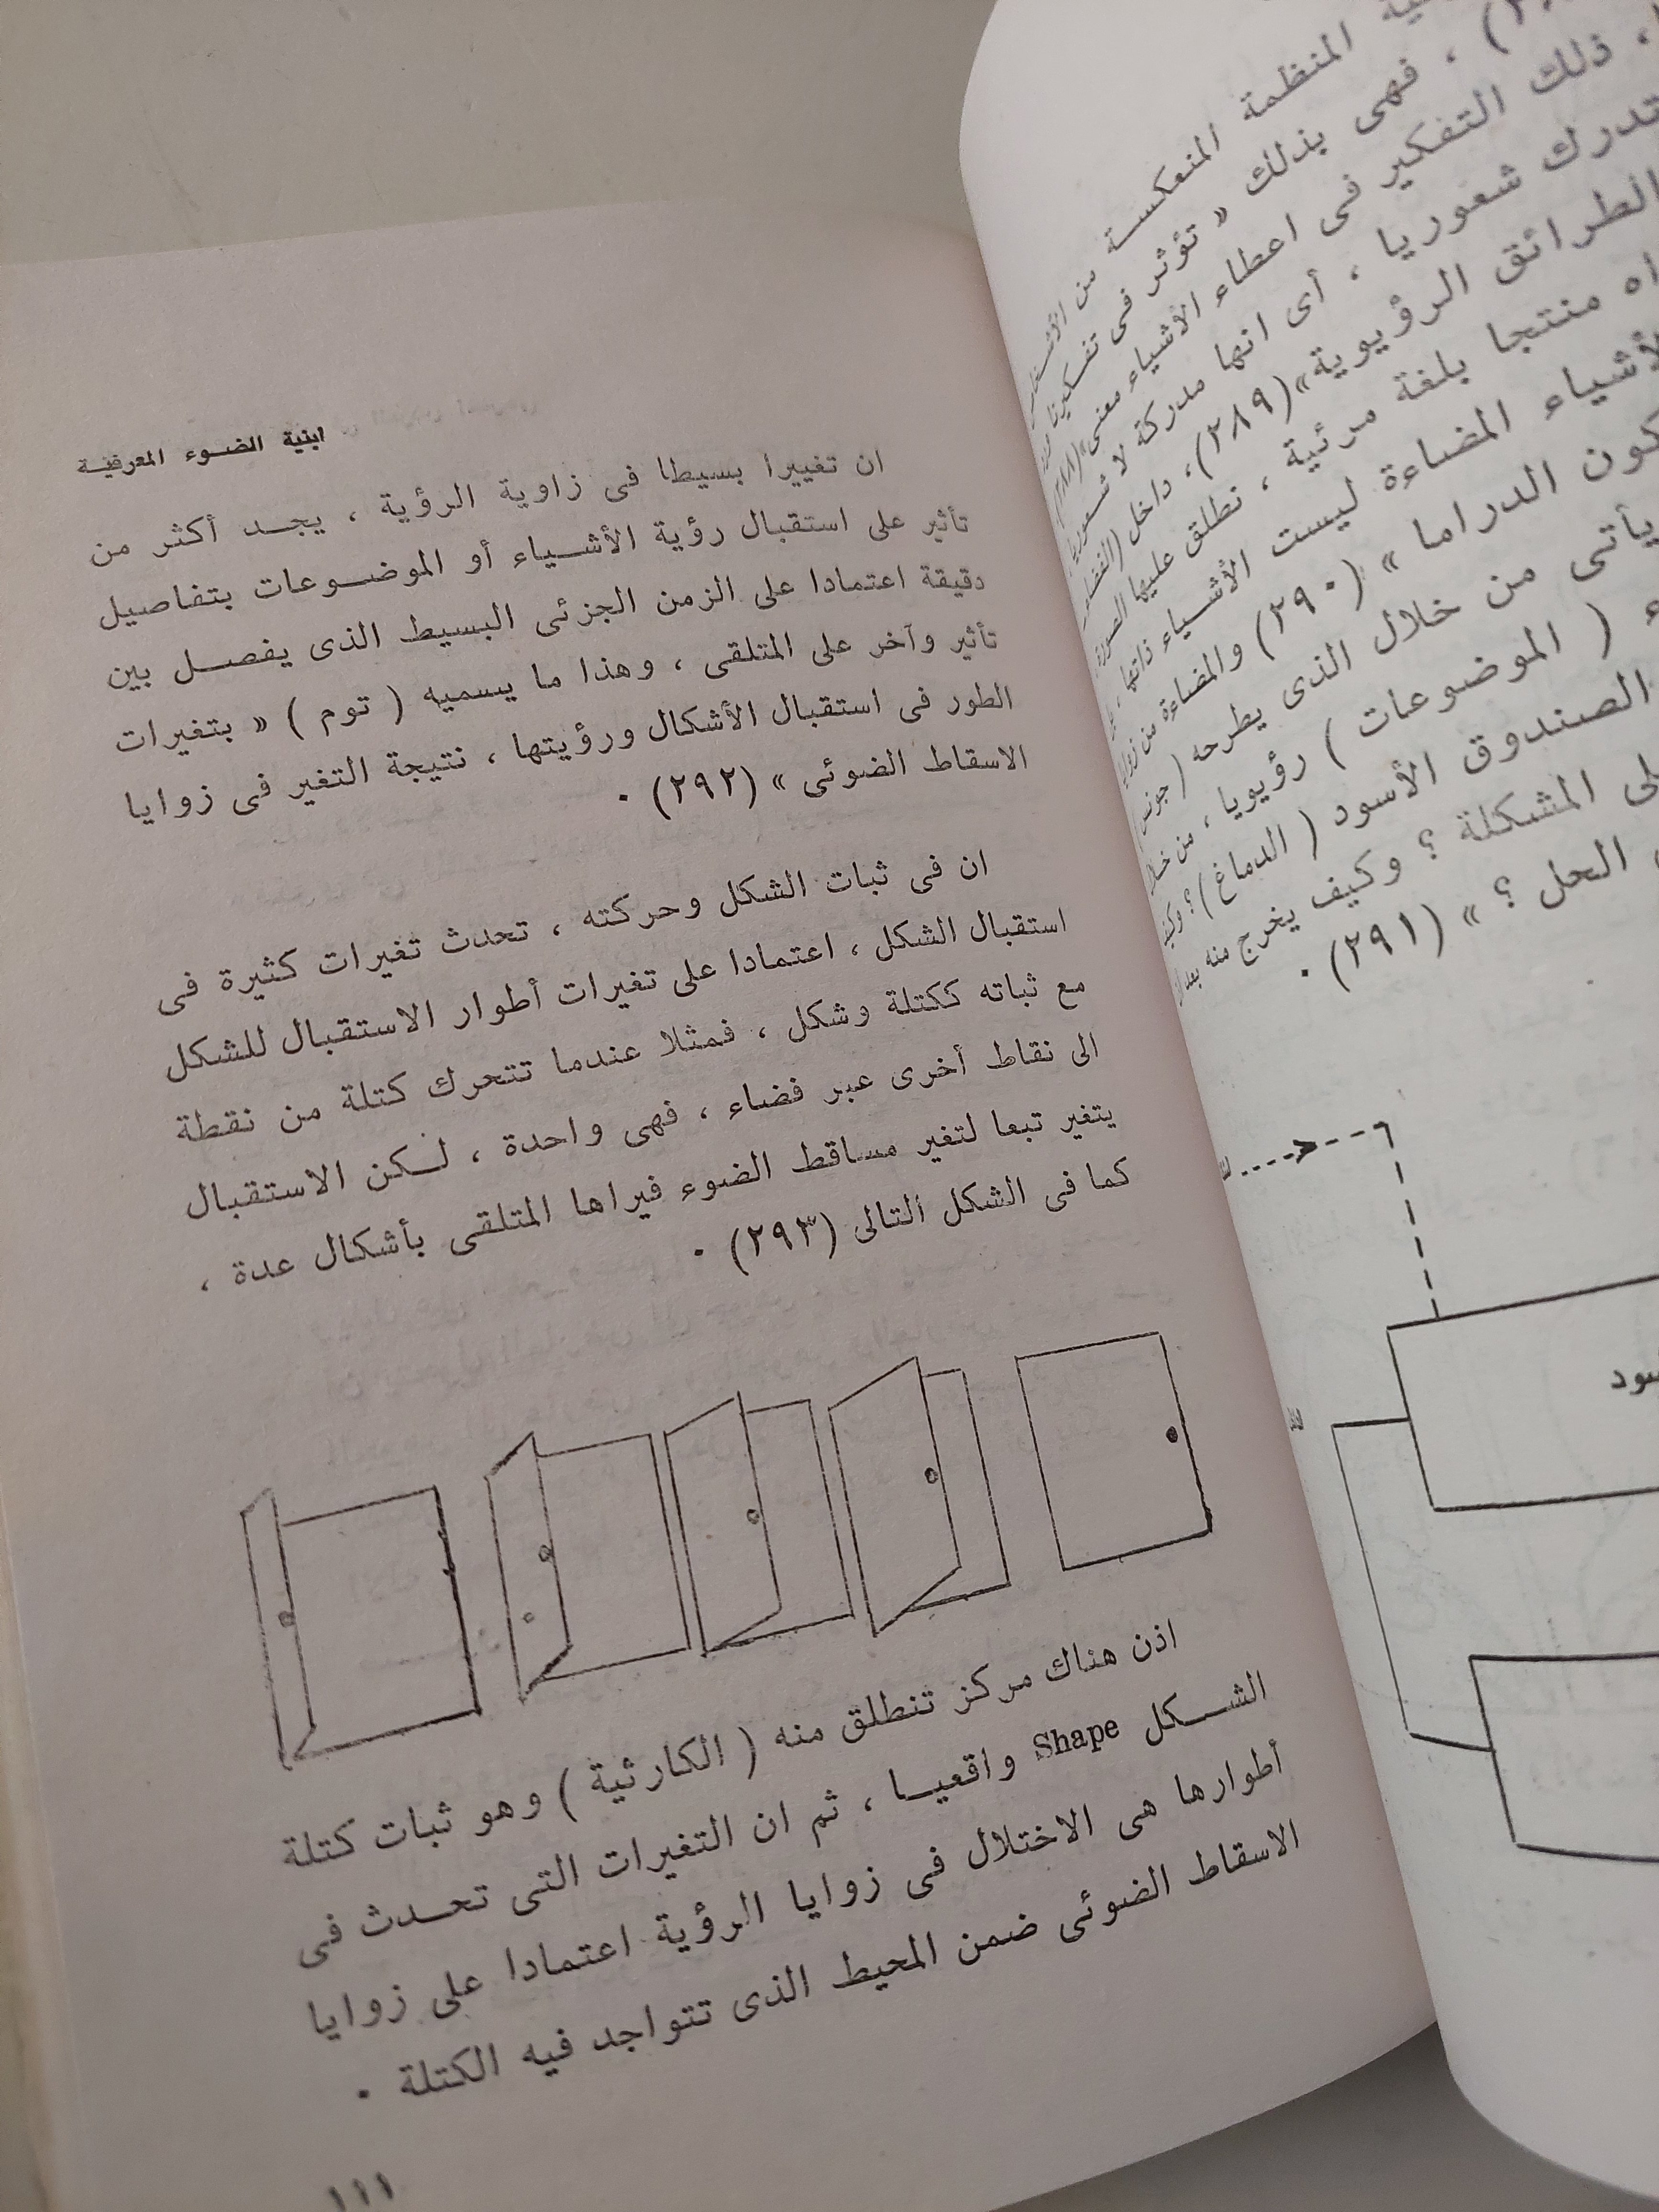 المنظمة المنعكسة من
، فهى بذلك « تؤثر فى تفكيرنا
، ذلك التفكير فى اعطاء الأشياء معنى» (٢٨٨)
تدرك شعوريا ، أى انها مدركة لا شعوريا
الطرائق الرؤيوية» (٢٨٩)، داخل
منتجا بلغة مرئية ، نطلق عليها الصورة
الأشياء المضاءة ليست الأشياء ذاتها ،
الدراما » (٢٩٠) والمضاءة من زوايا
يأتى من خلال الذى يطرحه ( جونس
( الموضوعات ) رؤيويا ، من خلال
الصندوق الأسود ( الدماغ) ؟ وكيف
المشكلة ؟ وكيف يخرج منه بعد أن
الحل ؟ » (٢٩١) .
ابنية الضوء المعرفية
ان تغييرا بسيطا فى زاوية الرؤية ، يجد أكثر من
تأثير على استقبال رؤية الأشياء أو الموضوعات بتفاصيل
دقيقة اعتمادا على الزمن الجزئى البسيط الذى يفصل بين
تأثير وآخر على المتلقى ، وهذا ما يسميه ( توم ) « بتغيرات
الطور فى استقبال الأشكال ورؤيتها ، نتيجة التغير فى زوايا
الاسقاط الضوئى » (٢٩٢) .
ان فى ثبات الشكل وحركته ، تحدث تغيرات كثيرة فى
استقبال الشكل ، اعتمادا على تغيرات أطوار الاستقبال للشكل
مع ثباته ككتلة وشكل ، فمثلا عندما تتحرك كتلة من نقطة
الى نقاط أخرى عبر فضاء ، فهى واحدة ، لكن الاستقبال
يتغير تبعا لتغير مساقط الضوء فيراها المتلقى بأشكال عدة ،
كما فى الشكل التالى (٢٩٣) .
اذن هناك مركز تنطلق منه ( الكارثية ) وهو ثبات كتلة
الشكل Shape واقعيا ، ثم ان التغيرات التى تحدث فى
أطوارها هى الاختلال فى زوايا الرؤية اعتمادا على زوايا
الاسقاط الضوئى ضمن المحيط الذى تتواجد فيه الكتلة .
١١١